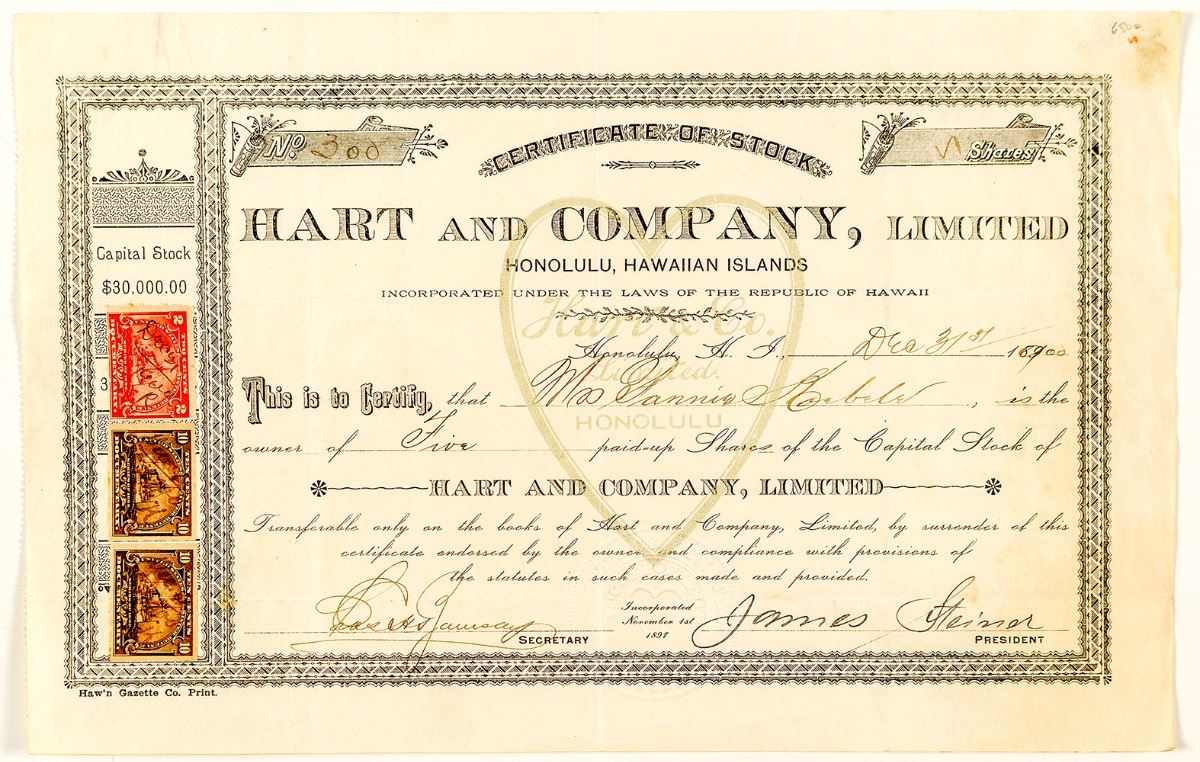 CERTIFICATE OF STOCK
No 300
5 Shares
HART AND COMPANY, LIMITED
HONOLULU, HAWAIIAN ISLANDS
INCORPORATED UNDER THE LAWS OF THE REPUBLIC OF HAWAII
Hart & Co.
Limited.
HONOLULU
Capital Stock
$30.000.00
Honolulu, H. I., Dec 31st 1900
This is to Certify, that Mrs Fannie, is the
owner of Five paid-up Shares of the Capital Stock of
HART AND COMPANY, LIMITED
Transferable only on the books of Hart and Company, Limited, by surrender of this
certificate endorsed by the owner and compliance with provisions of
the statutes in such cases made and provided.
SECRETARY
Incorporated
November 1st
1897
James Steiner
PRESIDENT
2
2
10
10
10
10
Haw'n Gazette Co. Print.